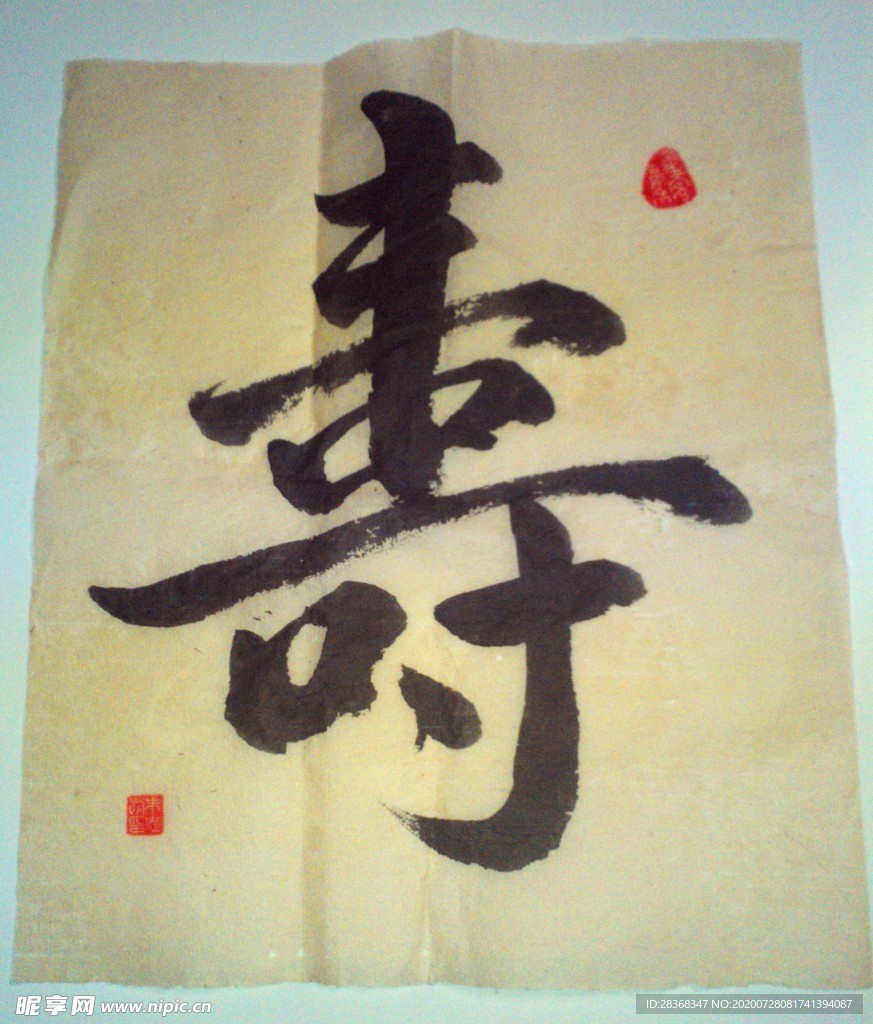 壽
昵享网 www.nipic.cn
ID:28368347 NO:20200728081741394087